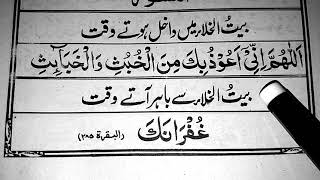 بیتُ الخلاء میں داخل ہوتے وقت
اَللّٰهُمَّ اِنِّیْ اَعُوْذُ بِكَ مِنَ الْخُبُثِ وَالْخَبَآئِثِ
بیتُ الخلاء سے باہر آتے وقت
غُفْرَانَكَ (البقرة ۲۸۵)